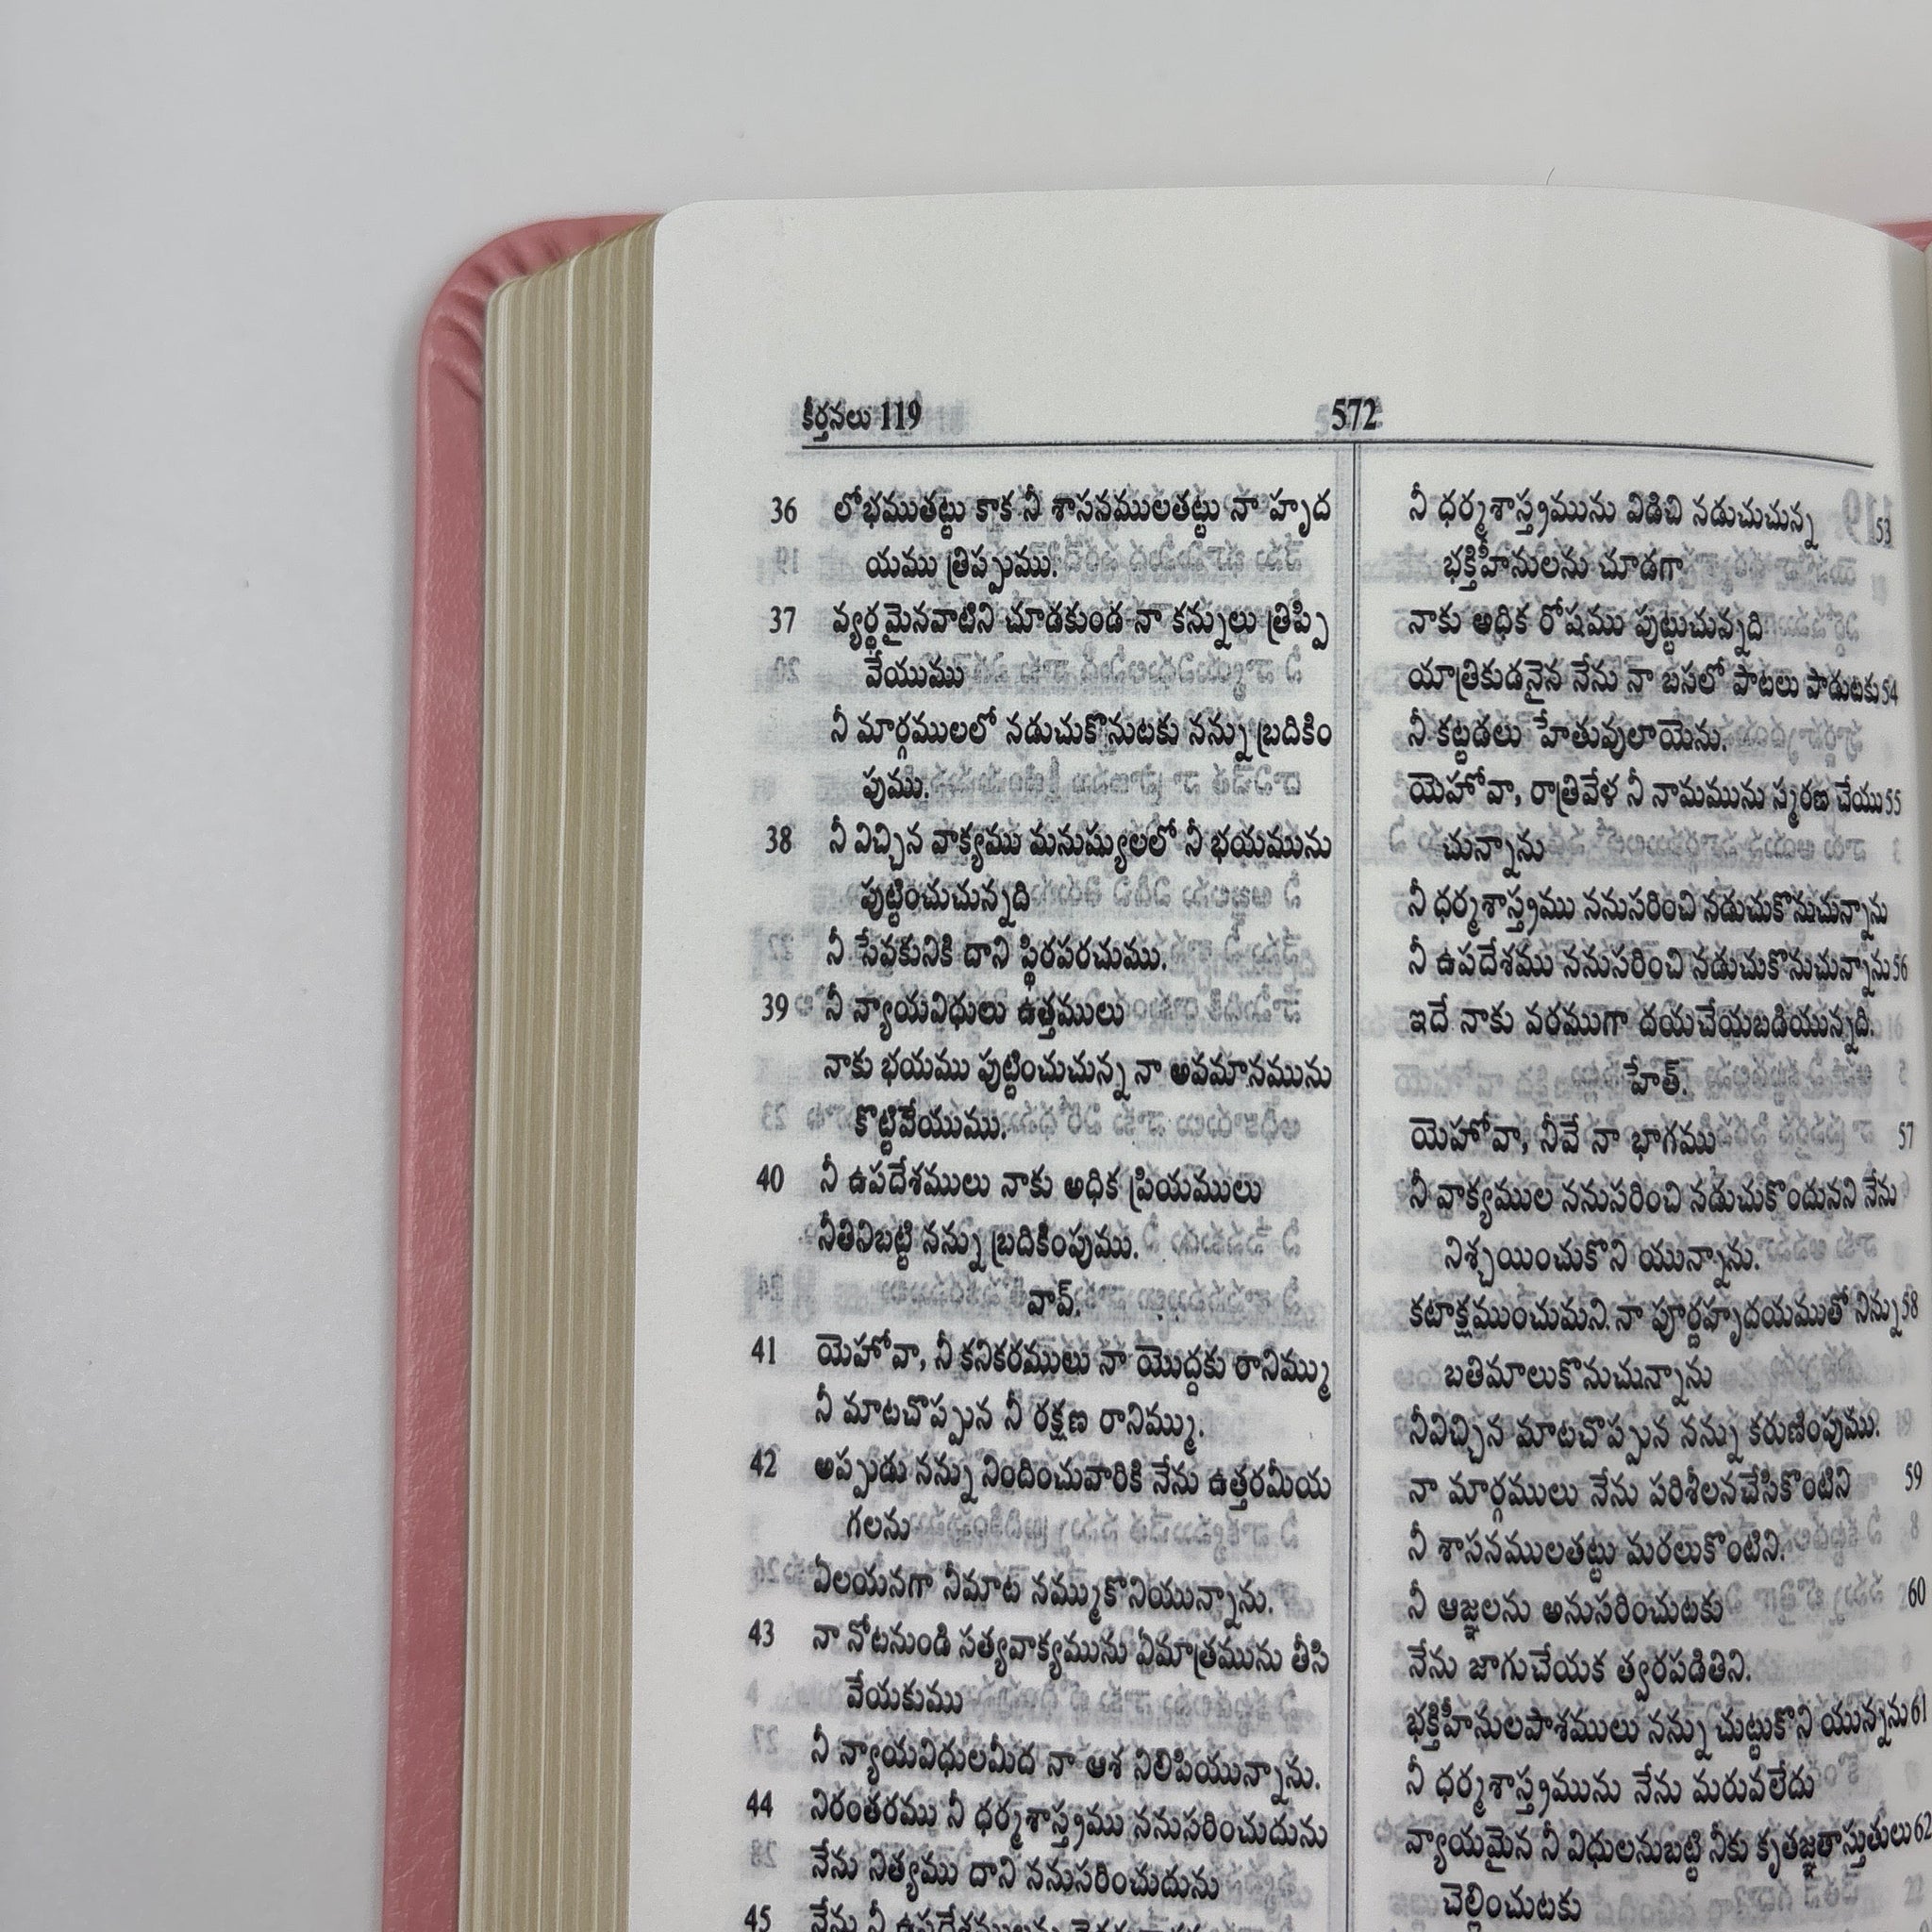 కీర్తనలు 119
572
36 లోభముతట్టు కాక నీ శాసనములతట్టు నా హృద
యము త్రిప్పుము.
37 వ్యర్థమైనవాటిని చూడకుండ నా కన్నులు త్రిప్పి
వేయుము
నీ మార్గములలో నడుచుకొనుటకు నన్ను బ్రదికిం
పుము.
38 నీ విచ్చిన వాక్యము మనుష్యులలో నీ భయమును
పుట్టించుచున్నది
నీ సేవకునికి దాని స్థిరపరచుము.
39 నీ న్యాయవిధులు ఉత్తములు
నాకు భయము పుట్టించుచున్న నా అవమానమును
కొట్టివేయుము.
40 నీ ఉపదేశములు నాకు అధిక ప్రియములు
నీతినిబట్టి నన్ను బ్రదికింపుము.
వావ్.
41 యెహోవా, నీ కనికరములు నా యొద్దకు రానిమ్ము
నీ మాటచొప్పున నీ రక్షణ రానిమ్ము.
42 అప్పుడు నన్ను నిందించువారికి నేను ఉత్తరమీయ
గలను
ఏలయనగా నీమాట నమ్ముకొనియున్నాను.
43 నా నోటనుండి సత్యవాక్యమును ఏమాత్రమును తీసి
వేయకుము
నీ న్యాయవిధులమీద నా ఆశ నిలిపియున్నాను.
44 నిరంతరము నీ ధర్మశాస్త్రము ననుసరించుదును
నేను నిత్యము దాని ననుసరించుదును
45 నేను నీ ఉపదేశములను
నీ ధర్మశాస్త్రమును విడిచి నడుచుచున్న 53
భక్తిహీనులను చూడగా
నాకు అధిక రోషము పుట్టుచున్నది
యాత్రికుడనైన నేను నా బసలో పాటలు పాడుటకు 54
నీ కట్టడలు హేతువులాయెను.
యెహోవా, రాత్రివేళ నీ నామమును స్మరణ చేయు 55
చున్నాను
నీ ధర్మశాస్త్రము ననుసరించి నడుచుకొనుచున్నాను
నీ ఉపదేశము ననుసరించి నడుచుకొనుచున్నాను 56
ఇదే నాకు వరముగా దయచేయబడియున్నది.
హేత్.
యెహోవా, నీవే నా భాగము 57
నీ వాక్యముల ననుసరించి నడుచుకొందునని నేను
నిశ్చయించుకొని యున్నాను.
కటాక్షముంచుమని నా పూర్ణహృదయముతో నిన్ను 58
బతిమాలుకొనుచున్నాను
నీవిచ్చిన మాటచొప్పున నన్ను కరుణింపుము.
నా మార్గములు నేను పరిశీలనచేసికొంటిని 59
నీ శాసనములతట్టు మరలుకొంటిని.
నీ ఆజ్ఞలను అనుసరించుటకు 60
నేను జాగుచేయక త్వరపడితిని.
భక్తిహీనులపాశములు నన్ను చుట్టుకొని యున్నను 61
నీ ధర్మశాస్త్రమును నేను మరువలేదు
న్యాయమైన నీ విధులనుబట్టి నీకు కృతజ్ఞతాస్తుతులు 62
చెల్లించుటకు